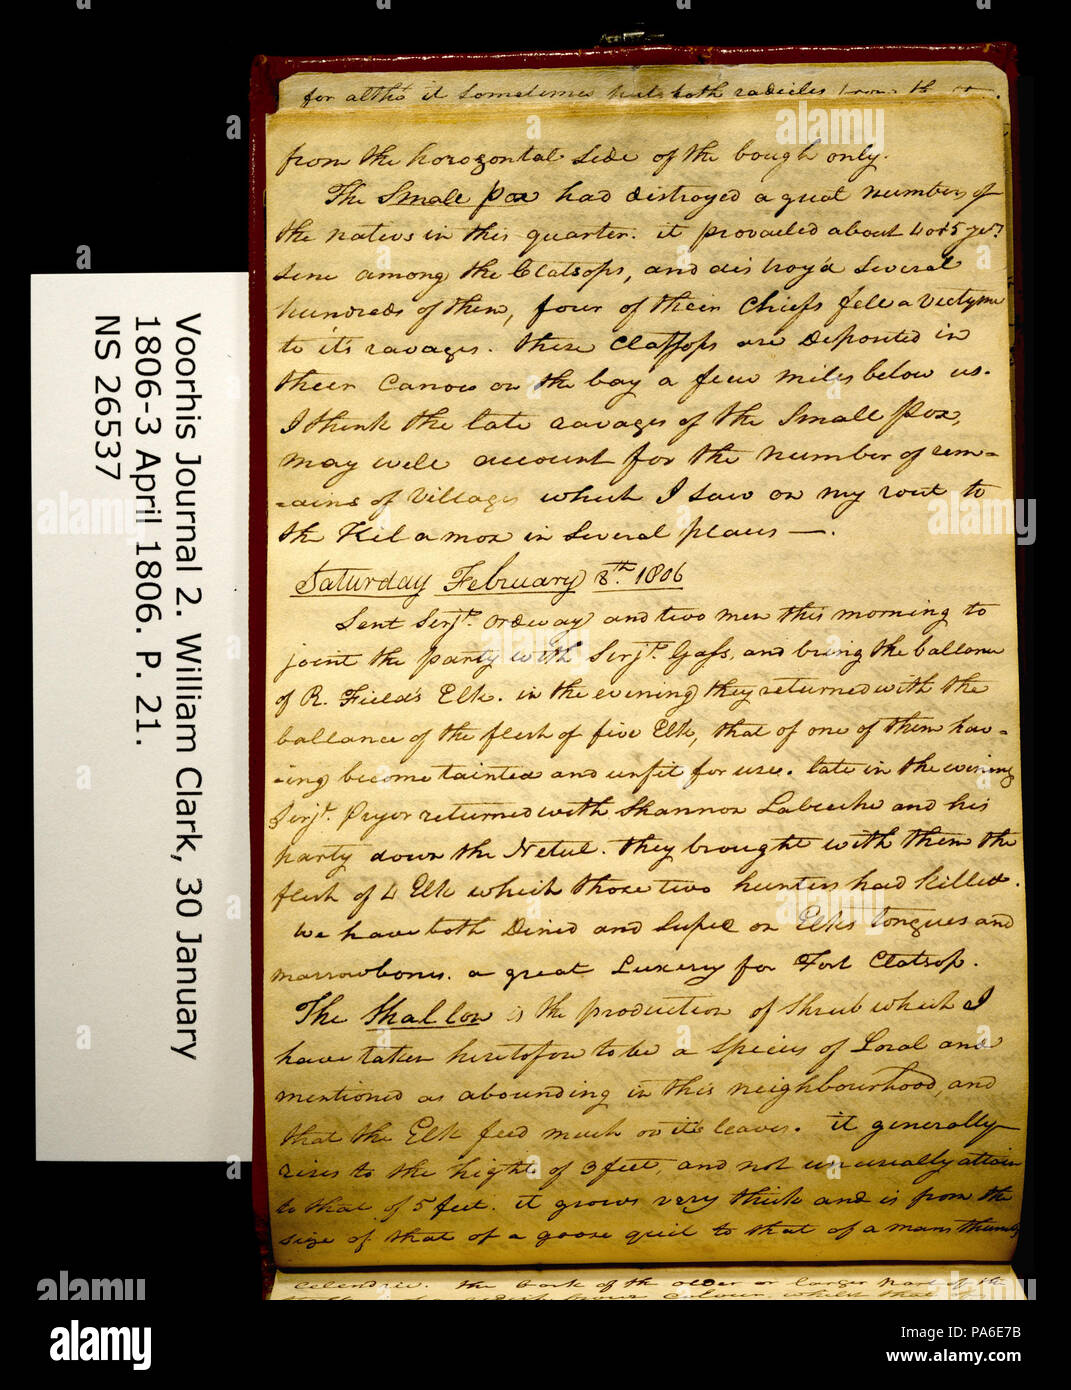 for altho it sometimes puts both radicles
from the horozontal side of the bough only.
The Small Pox had distroyed a great number of
the nativs in this quarter. it provailed about 4 or 5 yrs.
sinc among the Clatsops, and distroy'd several
hundreds of them, four of their Chiefs fell a victym
to it's ravages. these Clatsops are Deposited in
their Canoes on the bay a few miles below us.
I think the late ravages of the Small Pox,
may well account for the number of rem-
-ains of Villages which I saw on my rout to
the Kil a mox in several places —.
Saturday February 8th. 1806
Sent Serjt. Ordway and two men this morning to
joint the party with Serjt. Gass, and bring the ballance
of R. Field's Elk. in the evening they returned with the
ballance of the flesh of five Elk, that of one of them hav-
-ing become tainted and unfit for use. late in the evening
Serjt. Pryor returned with Shannon Labieche and his
party down the Netul. they brought with them the
flesh of 4 Elk which those two hunters had killed.
we have both Dined and suped on Elks tongues and
marrowbones. a great Luxury for Fort Clatsop.
The Shallon is the production of shrub which I
have taken heretofore to be a species of Loral and
mentioned as abounding in this neighbourhood, and
that the Elk feed much on it's leaves. it generally
rises to the hight of 3 feet, and not unusually attain
to that of 5 feet. it grows very thick and is from the
size of that of a goose quil to that of a mans thumb,
celendric. the bark of the older or larger part of the
Voorhis Journal 2. William Clark, 30 January
1806-3 April 1806. P. 21.
NS 26537
alamy
Image ID: PA6E7B
www.alamy.com